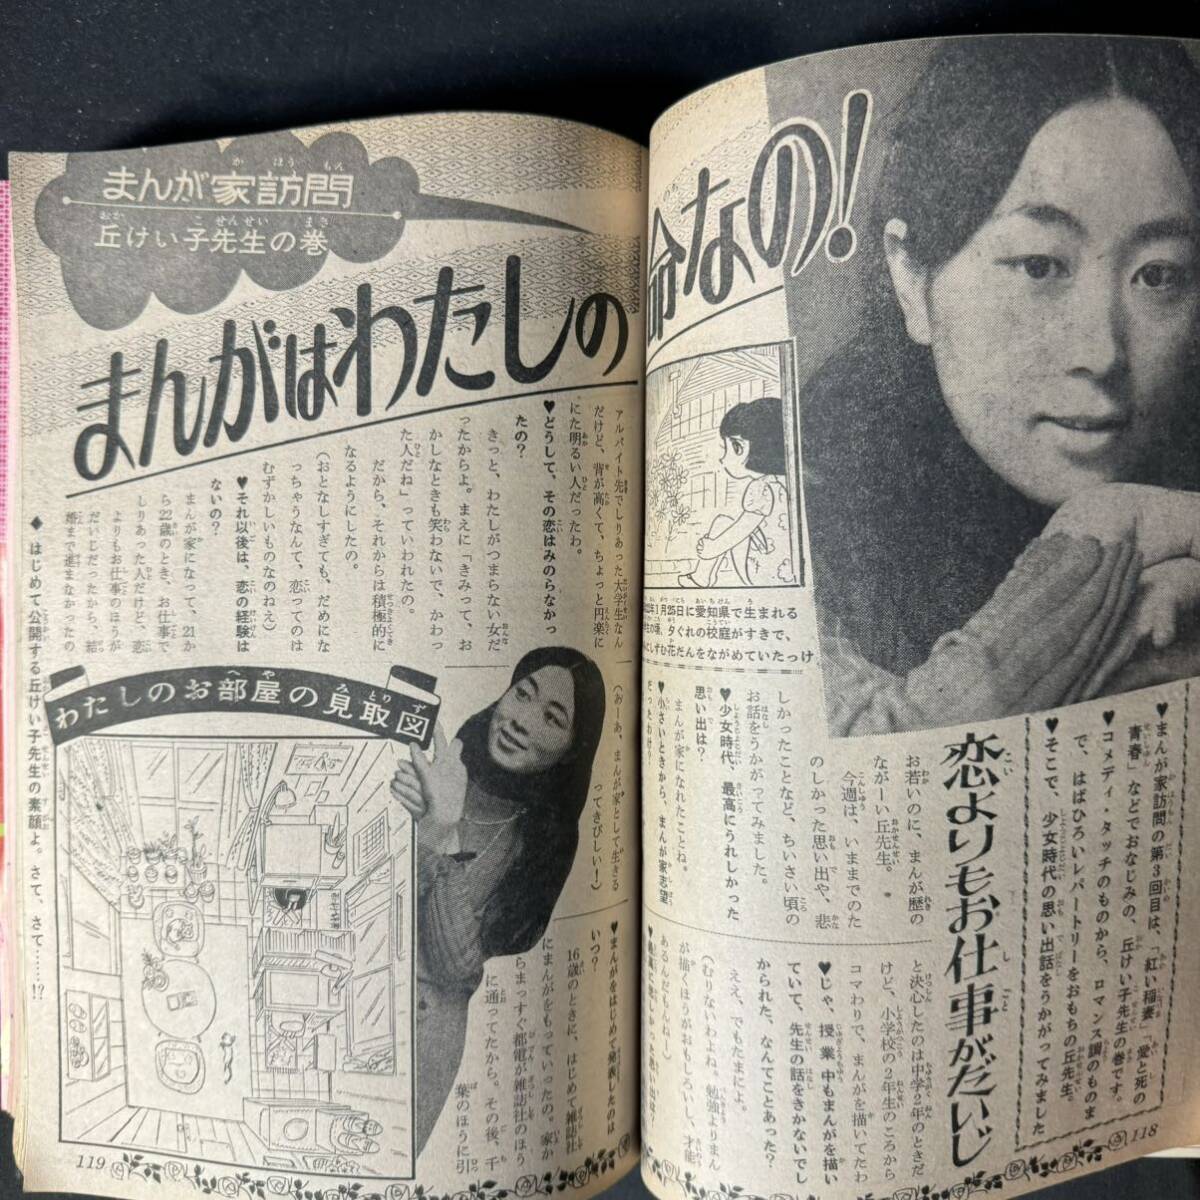 まんが家訪問
丘けい子先生の巻
まんがはわたしの
命なの!
♥まんが家訪問の第3回目は、「紅い稲妻」「愛と死の
青春」などでおなじみの、丘けい子先生の巻です。
♥コメディ・タッチのものから、ロマンス調のものま
で、はばひろいレパートリーをおもちの丘先生。
♥そこで、少女時代の思い出話をうかがってみました
恋よりもお仕事がだいじ
お若いのに、まんが歴の
ながーい丘先生。
今週は、いままでのた
のしかった思い出や、悲
しかったことなど、ちいさい頃の
お話をうかがってみました。
♥少女時代、最高にうれしかった
思い出は?
まんが家になれたことね。
♥小さいときから、まんが家志望
だったわけ?
と決心したのは中学2年のときだ
けど、小学校の2年生のころから
コマわりで、まんがを描いてたわ
♥じゃ、授業中もまんがを描い
ていて、先生の話をきかないでし
かられた、なんてことあった?
ええ、でもたまによ。
(むりないわよね。勉強よりまん
が描くほうがおもしろいし、才能
あるんだもんね!)
年1月25日に愛知県で生まれる
生の頃、夕ぐれの校庭がすきで、
にしずむ花だんをながめていたっけ
118
アルバイト先でしりあった大学生なん
だけど、背が高くて、ちょっと円楽に
にた明るい人だったわ。
♥どうして、その恋はみのらなかっ
たの?
きっと、わたしがつまらない女だ
ったからよ。まえに「きみって、お
かしなときも笑わないで、かわっ
た人だね」っていわれたの。
だから、それからは積極的に
なるようにしたの。
(おとなしすぎても、だめにな
っちゃうなんて、恋ってのは
むずかしいものなのねえ)
♥それ以後は、恋の経験は
ないの?
まんが家になって、21か
ら22歳のとき、お仕事で
しりあった人だけど、恋
よりもお仕事のほうが
だいじだったから、結
婚まで進まなかったの
(あーあ、まんが家として生きる
ってきびしい!)
♥まんがをはじめて発表したのは
いつ?
16歳のときに、はじめて雑誌社
にまんがをもっていったの。家か
らまっすぐ都電が雑誌社のほう
に通ってたから。その後、千
葉のほうに引
わたしのお部屋の見取図
◆はじめて公開する丘けい子先生の素顔よ。さて、さて……!?
119